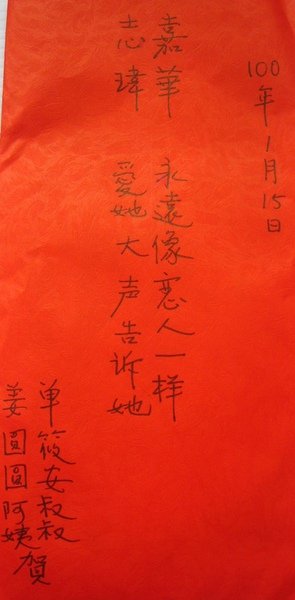 100年1月15日
嘉華 永遠像恋人一样
志瑋 愛她大声告訴她
单筱安叔叔
姜圓圓阿姨賀